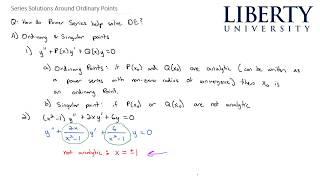 Series Solutions Around Ordinary Points
LIBERTY
UNIVERSITY
Q: How do Power Series help solve DE?
A) Ordinary & Singular points
1) y'' + P(x)y' + Q(x)y = 0
a) Ordinary Points: if P(x₀) and Q(x₀) are analytic (can be written as
a power series with non-zero radius of convergence) then x₀ is
an ordinary Point.
b) Singular point: if P(x₀) or Q(x₀) are not analytic
2) (x²-1)y'' + 2xy' + 6y = 0
y'' + 2x/(x²-1) y' + 6/(x²-1) y = 0
not analytic @ x = ±1